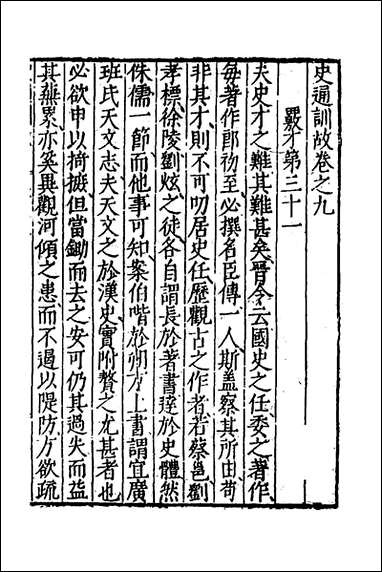 史通訓故卷之九
覈才第三十一
夫史才之難其難甚矣晉令云國史之任委之著作
每著作郎初至必撰名臣傳一人斯蓋察其所由苟
非其才則不可叨居史任歷觀古之作者若蔡邕劉
孝標徐陵劉炫之徒各自謂長於著書達於史體然
侏儒一節而他事可知案伯喈於朔方上書謂宜廣
班氏天文志夫天文之於漢史實附贅之尤甚者也
必欲申以掎摭但當鋤而去之安可仍其過失而益
其蕪累亦奚異觀河傾之患而不遏以隄防方欲疏